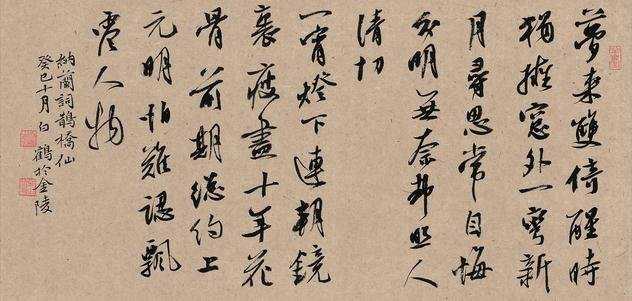 夢來雙倚醒時
猶擁窓外一彎新
月尋思常自悔
分明無奈却照人
清切
一宵燈下連朝鏡
裏瘦盡十年花
骨前期總約上
元明怕難認飄
零人物
納蘭詞鵲橋仙
癸巳十月白鶴於金陵